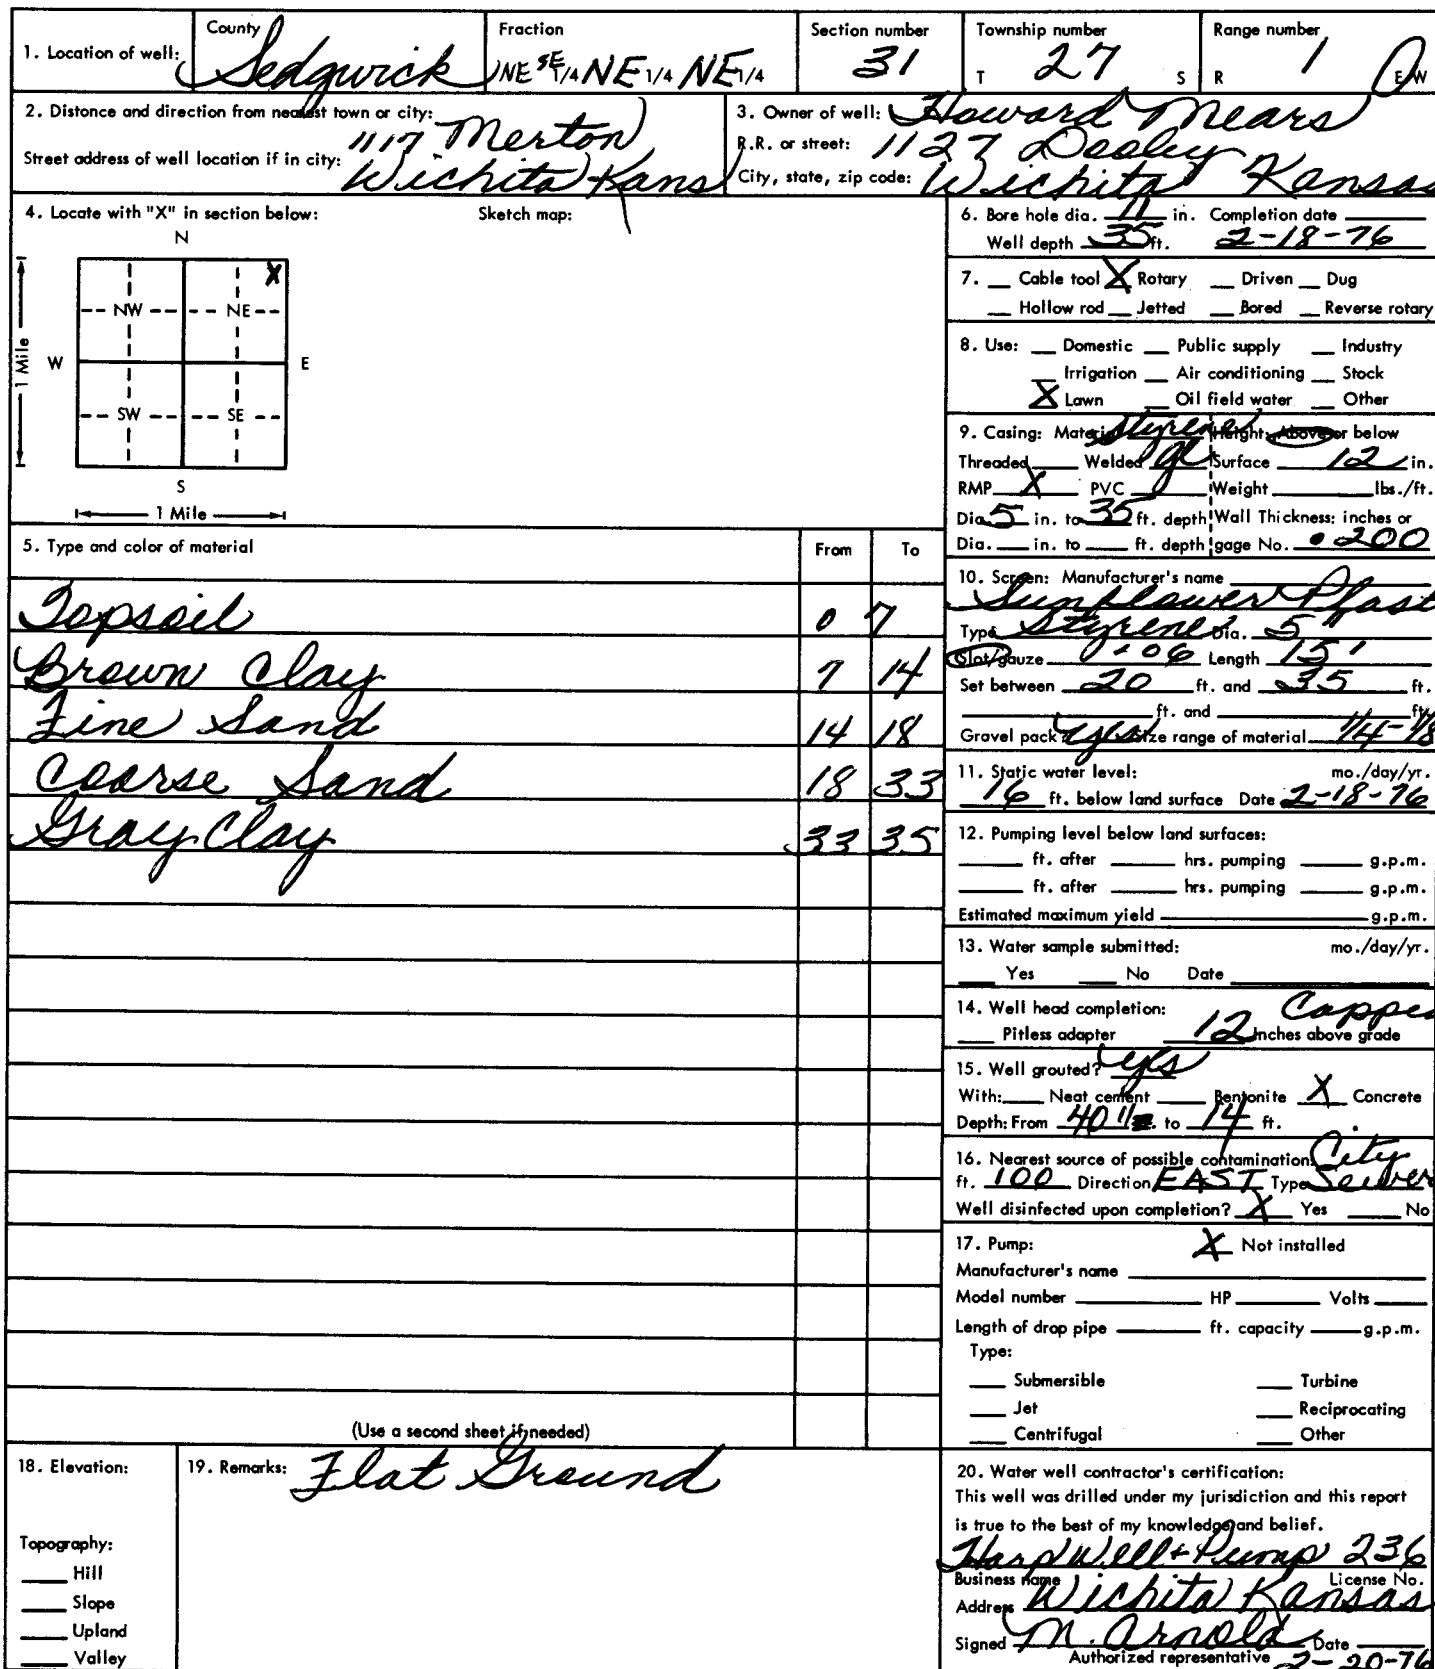 1. Location of well: County Sedgwick Fraction NE SE 1/4 NE 1/4 NE 1/4 Section number 31 Township number T 27 S Range number R 1 E/W
2. Distance and direction from nearest town or city:
1117 Merton
Street address of well location if in city: Wichita Kans
3. Owner of well: Howard Mears
R.R. or street: 1127 Dooley
City, state, zip code: Wichita Kansas
4. Locate with "X" in section below: Sketch map:
N
X
NW NE
W E
1 Mile
SW SE
S
1 Mile
5. Type and color of material From To
Topsoil 0 7
Brown Clay 7 14
Fine Sand 14 18
Coarse Sand 18 33
Gray Clay 33 35
(Use a second sheet if needed)
6. Bore hole dia. 11 in. Completion date
Well depth 35 ft. 2-18-76
7. Cable tool X Rotary Driven Dug
Hollow rod Jetted Bored Reverse rotary
8. Use: Domestic Public supply Industry
Irrigation Air conditioning Stock
X Lawn Oil field water Other
9. Casing: Material Styrene Height: Above or below
Threaded Welded gl Surface 12 in.
RMP X PVC Weight lbs./ft.
Dia. 5 in. to 35 ft. depth Wall Thickness: inches or
Dia. in. to ft. depth gage No. .200
10. Screen: Manufacturer's name
Sunflower Plast
Type Styrene Dia. 5"
Slot/gauze .06 Length 15'
Set between 20 ft. and 35 ft.
ft. and ft.
Gravel pack? yes Size range of material 1/4-1/8
11. Static water level: mo./day/yr.
16 ft. below land surface Date 2-18-76
12. Pumping level below land surfaces:
ft. after hrs. pumping g.p.m.
ft. after hrs. pumping g.p.m.
Estimated maximum yield g.p.m.
13. Water sample submitted: mo./day/yr.
Yes No Date
14. Well head completion: Capped
Pitless adapter 12 Inches above grade
15. Well grouted? yes
With: Neat cement Bentonite X Concrete
Depth: From 40" to 14 ft.
16. Nearest source of possible contamination: City
ft. 100 Direction EAST Type Sewer
Well disinfected upon completion? X Yes No
17. Pump: X Not installed
Manufacturer's name
Model number HP Volts
Length of drop pipe ft. capacity g.p.m.
Type:
Submersible Turbine
Jet Reciprocating
Centrifugal Other
18. Elevation:
Topography:
Hill
Slope
Upland
Valley
19. Remarks: Flat Ground
20. Water well contractor's certification:
This well was drilled under my jurisdiction and this report
is true to the best of my knowledge and belief.
Harp Well + Pump 236
Business name License No.
Address Wichita Kansas
Signed M. Arnold Date
Authorized representative 2-20-76